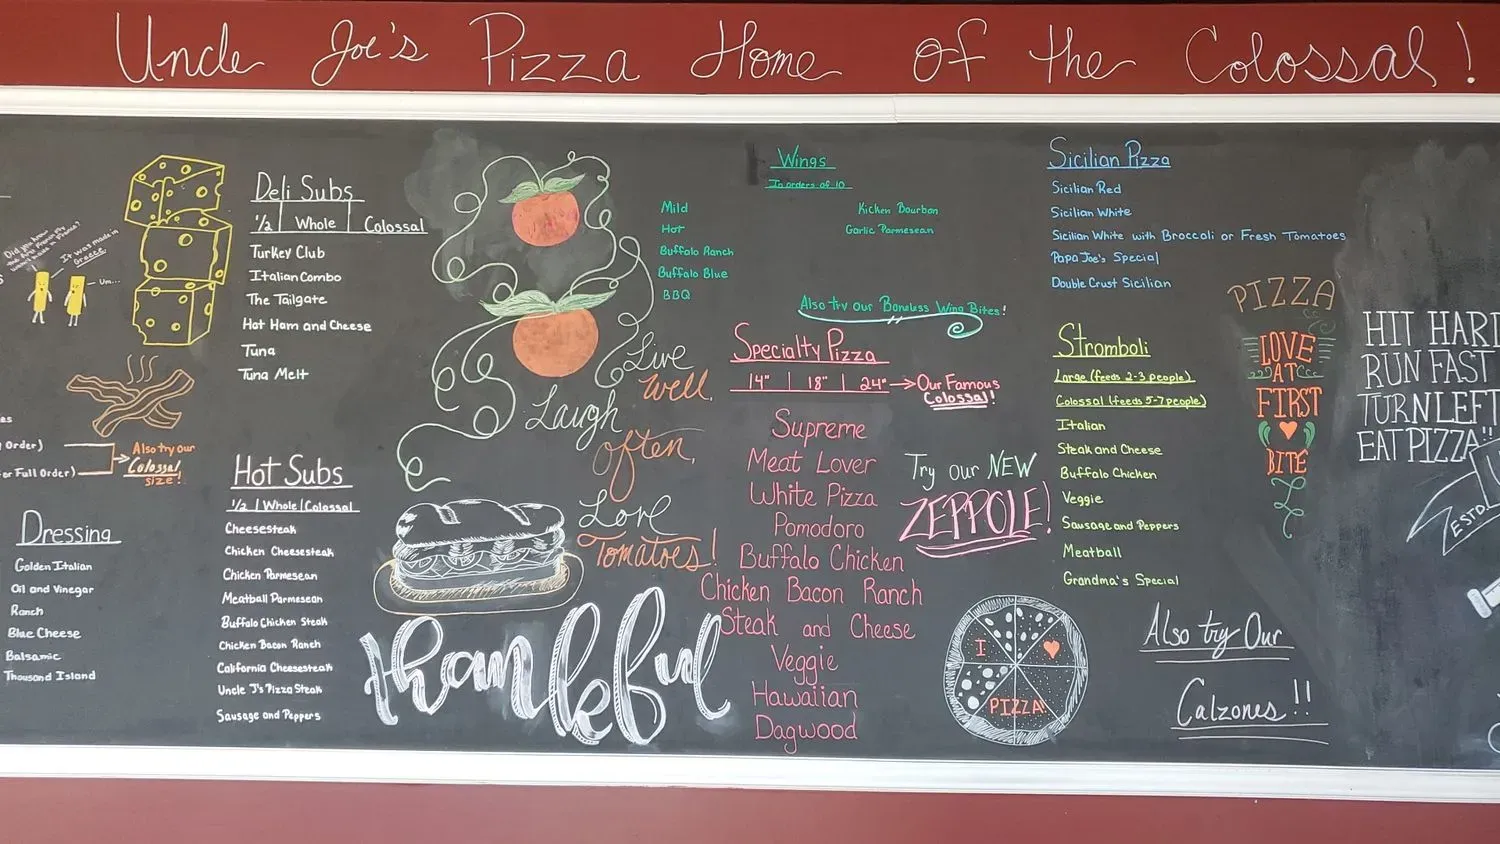 Uncle Joe's Pizza Home of the Colossal!
Did you know
the first French fry
wasn't made in France?
It was made in
Greece
Um...
es
Order)
or Full Order)
Also try our
Colossal
size!
Dressing
Golden Italian
Oil and Vinegar
Ranch
Blue Cheese
Balsamic
Thousand Island
Deli Subs
1/2 | Whole | Colossal
Turkey Club
Italian Combo
The Tailgate
Hot Ham and Cheese
Tuna
Tuna Melt
Hot Subs
1/2 | Whole | Colossal
Cheesesteak
Chicken Cheesesteak
Chicken Parmesean
Meatball Parmesean
Buffalo Chicken Steak
Chicken Bacon Ranch
California Cheesesteak
Uncle J's Pizza Steak
Sausage and Peppers
Live
Well.
Laugh
often.
Love
Tomatoes!
thankful
Wings
In orders of 10
Mild
Hot
Buffalo Ranch
Buffalo Blue
BBQ
Kicken Bourbon
Garlic Parmesean
Also try our Boneless Wing Bites!
Specialty Pizza
14" | 18" | 24" → Our Famous
Colossal!
Supreme
Meat Lover
White Pizza
Pomodoro
Buffalo Chicken
Chicken Bacon Ranch
Steak and Cheese
Veggie
Hawaiian
Dagwood
Try our NEW
ZEPPOLE!
I
PIZZA!
Sicilian Pizza
Sicilian Red
Sicilian White
Sicilian White with Broccoli or Fresh Tomatoes
Papa Joe's Special
Double Crust Sicilian
Stromboli
Large (feeds 2-3 people)
Colossal (feeds 5-7 people)
Italian
Steak and Cheese
Buffalo Chicken
Veggie
Sausage and Peppers
Meatball
Grandma's Special
Also try Our
Calzones!!
PIZZA
LOVE
AT
FIRST
BITE
HIT HARD
RUN FAST
TURN LEFT
EAT PIZZA!!
ESTD